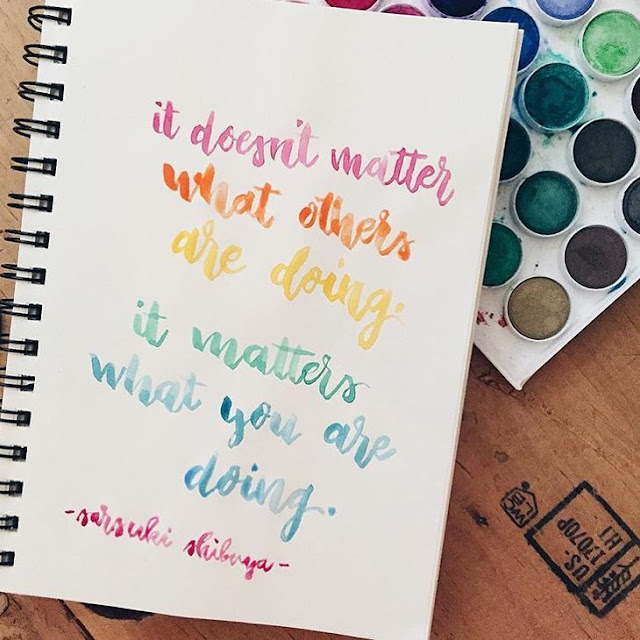 it doesn't matter
what others
are doing.
it matters
what you are
doing.
-sarsuki shibuya-
US-